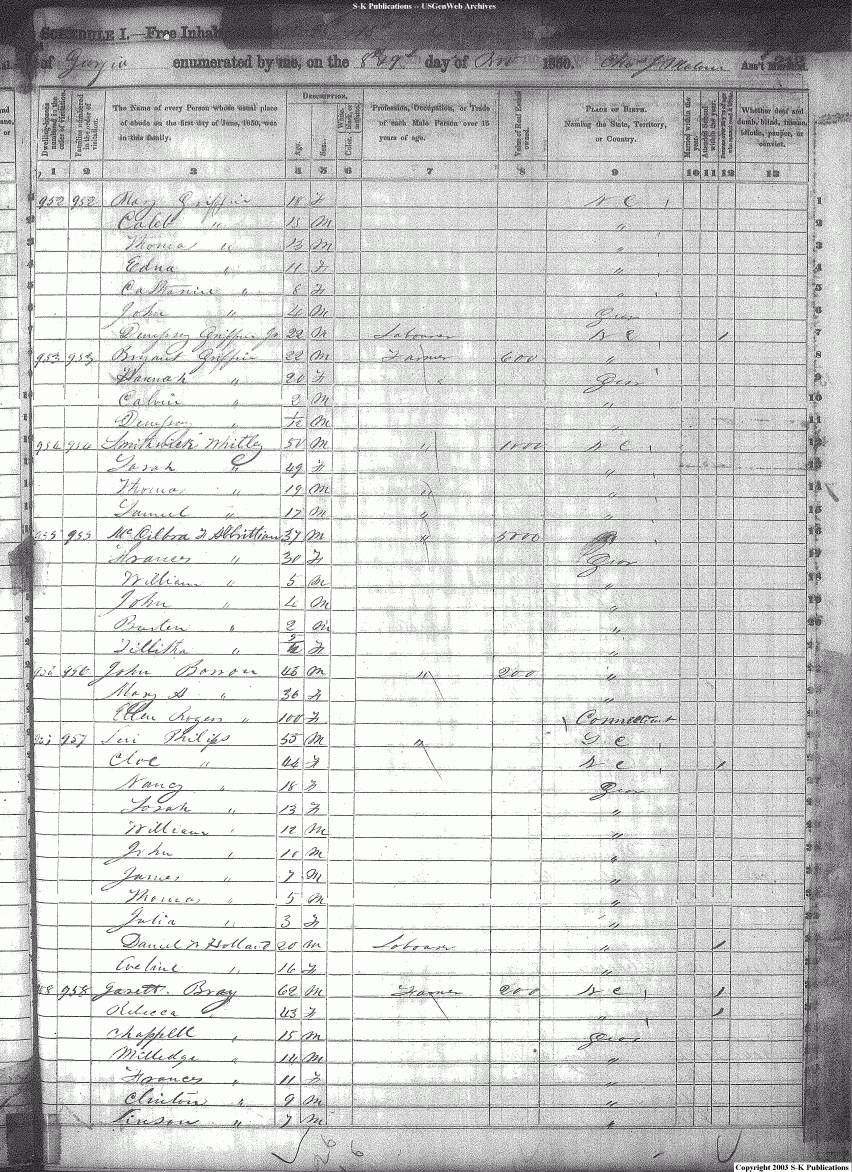 S-K Publications -- USGenWeb Archives
SCHEDULE I.—Free Inhab
of Georgia enumerated by me, on the 8th 29th day of Nov 1850. Chas J Malone Ass't Marshal.
Dwelling-houses numbered in the order of visitation. Families numbered in the order of visitation. The Name of every Person whose usual place of abode on the first day of June, 1850, was in this family. Description. Age. Sex. Color, White, black, or mulatto. Profession, Occupation, or Trade of each Male Person over 15 years of age. Value of Real Estate owned. Place of Birth. Naming the State, Territory, or Country. Married within the year. Whether deaf and dumb, blind, insane, idiotic, pauper, or convict.
1 2 3 4 5 6 7 8 9 10 11 12 13
952 952 Mary Griffin 18 F N C 1
Caleb " 15 M " 2
Thomas " 13 M " 3
Edna " 11 F " 4
Catharine " 8 F " 5
John " 4 M Geor 6
Dempsey Griffin Jr 22 M Labourer N C 7
953 953 Bryant Griffin 22 M Farmer 600 " 8
Hannah " 20 F Geor 9
Calvin " 2 M " 10
Dempsey " 1/12 M " 11
954 954 Smithwick Whitley 50 M " 1000 N C 12
Sarah " 49 F " 13
Thomas " 19 M " " 14
Samuel " 17 M " " 15
955 955 37 M " 5000 16
Frances " 30 F Geor 17
William " 5 M " 18
John " 4 M " 19
" 2 M " 20
Tillitha " 5/12 F "
956 956 John 43 M " 200 "
Mary " 36 F "
Ellen Rogers " 100 F Connecticut
957 957 Philips 55 M " S C
Cloe " 44 F N C
Nancy " 18 F Geor
Sarah " 13 F "
William " 12 M "
John " 10 M "
James " 7 M "
Thomas " 5 M "
Julia " 3 F "
Daniel Holland 20 M Labourer "
Eveline " 16 F "
958 958 Jarett Bray 62 M Farmer 200 N C
Rebecca " 43 F "
Chappell " 15 M Geor
Milledge " 14 M "
Frances " 11 F "
Clinton " 9 M "
Vinson " 7 M "
Copyright 2003 S-K Publications